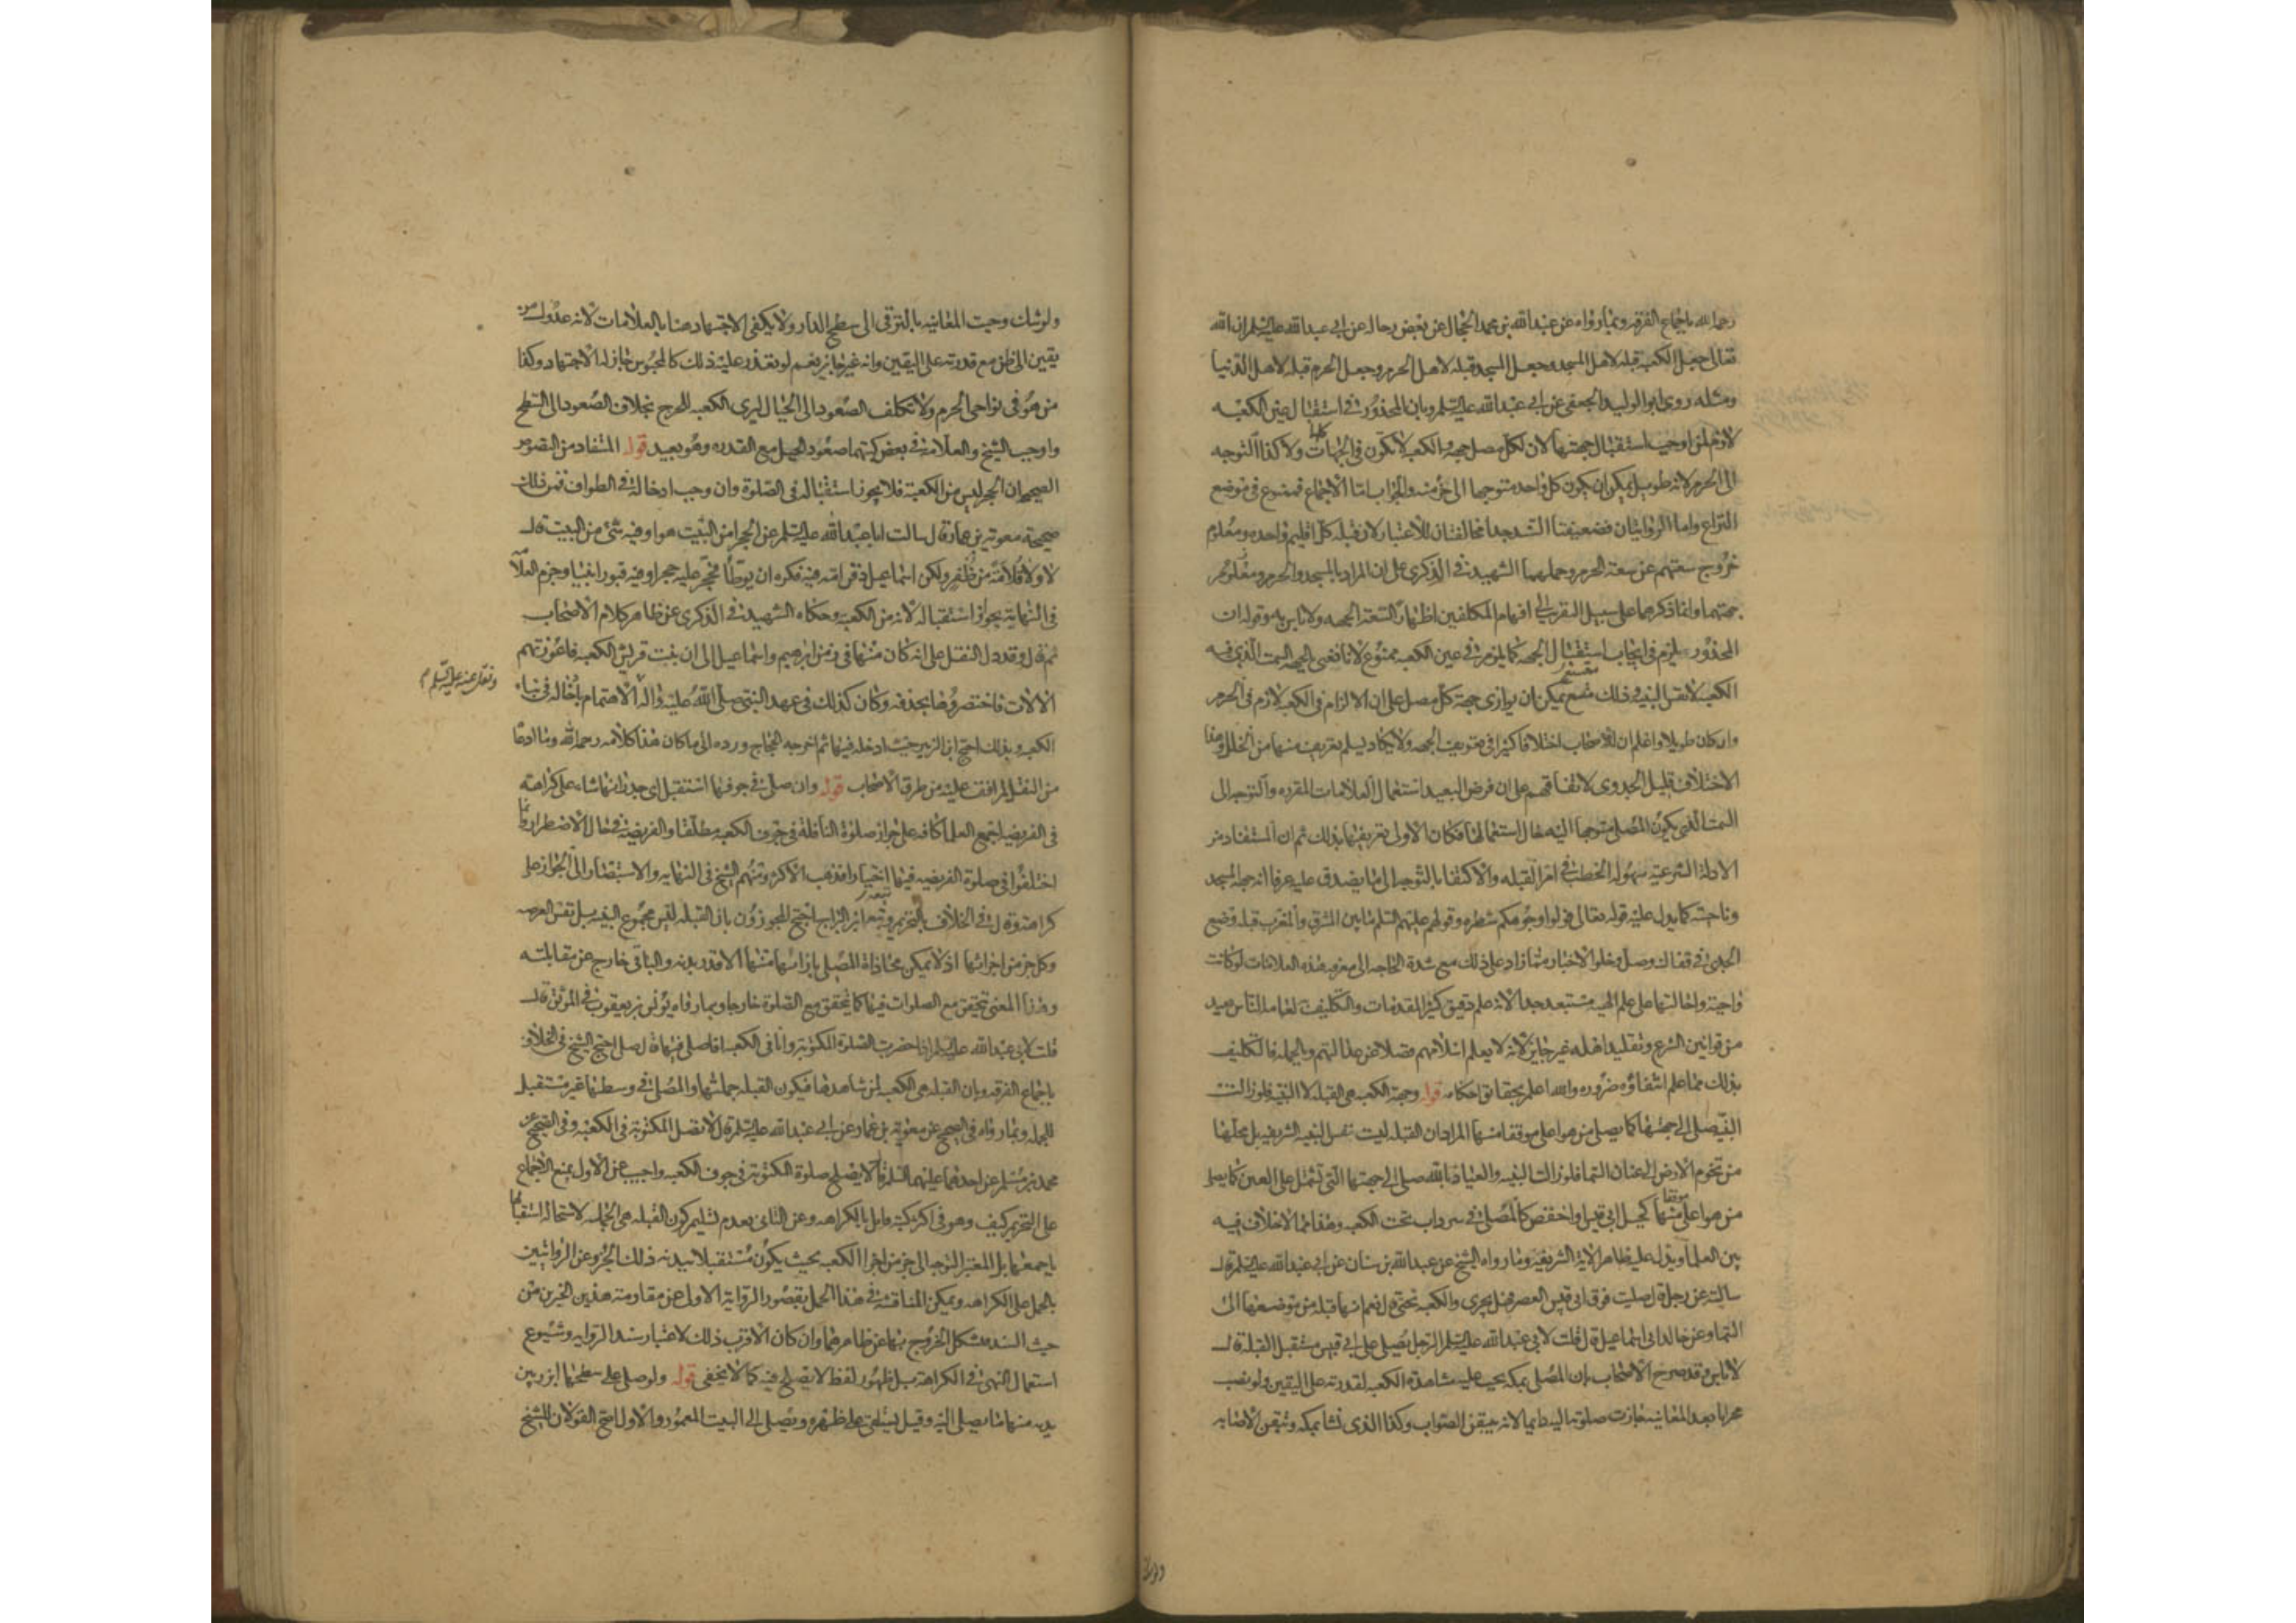 رحمه الله باجماع الفرقه وبما رواه عن عبد الله بن محمد الحجال عن بعض رجاله عن ابي عبد الله عليه السلم ان الله
تعالى جعل الكعبه قبله لاهل المسجد وجعل المسجد قبله لاهل الحرم وجعل الحرم قبله لاهل الدنيا
ومثله روى ابو الوليد الجعفي عن ابي عبد الله عليه السلم وبان المحذور في استقبال عين الكعبه
لازم لمن اوجب استقبال جهتها لان لكل مصل جهه والكعبه لا تكون في الجهات كلها ولا كذا التوجه
الى الحرم لانه طويل يمكن ان يكون كل واحد متوجها الى جزء منه والجواب اما الاجماع فممنوع في موضع
النزاع واما الروايتان فضعيفتا السند جدا مخالفتان للاعتبار لان قبله كل اقليم واحده ومعلوم
خروج سعتهم عن سعة الحرم وحملهما الشهيد في الذكرى على ان المراد بالمسجد والحرم ومعلوم
جهتهما وانما ذكرهما على سبيل التقريب الى افهام المكلفين اظهارا لسعة الجهه ولا باس به وقوله ان
المحذور يلزم في ايجاب استقبال الجهه كما يلزم في عين الكعبه ممنوع لانا نعني بالجهه السمت الذي فيه
الكعبه لا نفس البنيه وذلك متسع يمكن ان يوازي جهة كل مصل على ان الالزام في الكعبه لازم في الحرم
وان كان طويلا واعلم ان للاصحاب اختلافا كثيرا في تعريف الجهه ولا يكاد يسلم تعريف منها من الخلل وهذا
الاختلاف قليل الجدوى لاتفاقهم على ان فرض البعيد استعمال العلامات المقرره والتوجه الى
السمت الذي يكون المصلي متوجها اليه حال استعمالها فكان الاولى تعريفها بذلك ثم ان المستفاد من
الادلة الشرعية سهولة الخطب في امر القبله والاكتفاء بالتوجه الى ما يصدق عليه عرفا انه جهة المسجد
وناحيته كما يدل عليه قوله تعالى فولوا وجوهكم شطره وقولهم عليهم السلم ما بين المشرق والمغرب قبله وضع
الجدي في قفاك وصل وخلو الاخبار مما زاد على ذلك مع شدة الحاجه الى معرفه هذه العلامات لو كانت
واجبة واحالتها على علم الهيه مستبعد جدا لانه علم دقيق كثير المقدمات والتكليف به لعامه الناس بعيد
من قوانين الشرع وتقليد اهله غير جايز لانه لا يعلم اسلامهم فضلا عن عدالتهم وبالجمله فالتكليف
بذلك مما علم انتفاؤه ضروره والله اعلم بحقائق احكامه قوله وجهة الكعبه هي القبله لا البنيه فلو زالت
البنيه صلى الى جهتها كما يصلي من هو اعلى موقفا منها المراد ان القبله ليست نفس البنيه الشريفه بل محلها
من تخوم الارض الى عنان السماء فلو زالت البنيه والعياذ بالله صلى الى جهتها التي تشتمل على العين كما يصلي
من هو اعلى موقفا منها كجبل ابي قبيس او اخفض كالمصلي في سرداب تحت الكعبه وهذا مما لا خلاف فيه
بين العلماء ويدل عليه ظاهر الاية الشريفه وما رواه الشيخ عن عبد الله بن سنان عن ابي عبد الله عليه السلم قال
سالته عن رجل قال صليت فوق ابي قبيس العصر فهل يجزي والكعبه تحتي قال نعم انها قبله من موضعها الى
السماء وعن خالد ابي اسماعيل قال قلت لابي عبد الله عليه السلم الرجل يصلي على ابي قبيس مستقبل القبلة قال
لا باس وقد صرح الاصحاب بان المصلي بمكه يجب عليه مشاهدة الكعبه لقدرته على اليقين ولو نصب
محرابا بعد المعاينه جازت صلوته اليه دايما لانه يتيقن الصواب وكذا الذي نشا بمكه وتيقن الاصابه
ولو شك وجبت المعاينه بالترقي الى سطح الدار ولا يكفي الاجتهاد هنا بالعلامات لانه عدول من
يقين الى ظن مع قدرته على اليقين وانه غير جايز نعم لو تعذر عليه ذلك كالمحبوس جاز له الاجتهاد وكذا
من هو في نواحي الحرم ولا يكلف الصعود الى الجبال ليرى الكعبه للحرج بخلاف الصعود الى السطح
واوجب الشيخ والعلامة في بعض كتبهما صعود الجبل مع القدره وهو بعيد قوله المستفاد من النصوص
الصحيحه ان الحجر ليس من الكعبة فلا يجوز استقباله في الصلوة وان وجب ادخاله في الطواف فمن ذلك
صحيحة معوية بن عمار قال سالت ابا عبد الله عليه السلم عن الحجر امن البيت هو او فيه شئ من البيت قال
لا ولا قلامة من ظفر ولكن اسماعيل دفن امه فيه فكره ان يوطأ فحجر عليه حجرا وفيه قبور انبيا وجزم العلامه
في النهاية بجواز استقباله لانه من الكعبه وحكاه الشهيد في الذكرى عن ظاهر كلام الاصحاب
ثم قال وقد دل النقل على انه كان منها في زمن ابرهيم واسماعيل الى ان بنت قريش الكعبه فاعوزتهم
الالات فاختصروها بحذفه وكان كذلك في عهد النبي صلى الله عليه واله الاهتمام بادخاله في بناء
ونقل عنه عليه السلم
الكعبه وبذلك احتج ابن الزبير حيث ادخله فيها ثم اخرجه الحجاج ورده الى ما كان هذا كلامه رحمه الله وما ادعاه
من النقل لم اقف عليه من طرق الاصحاب قوله وان صلى في جوفها استقبل اي جدرانها شاء على كراهته
في الفريضه اجمع العلما كافه على جواز صلوة النافلة في جوف الكعبه مطلقا والفريضة في حال الاضطرار وانما
اختلفوا في صلوة الفريضه فيها اختيارا فذهب الاكثر ومنهم الشيخ في النهايه والاستبصار الى الجواز على
كراهته وقال في الخلاف بالتحريم وتبعه ابن البراج احتج المجوزون بان القبله ليس مجموع البنيه بل نفس العرصه
وكل جزء من اجزائها اذ لا يمكن محاذاة المصلي بازائها منها الا قدر بدنه والباقي خارج عن مقابلته
وهذا المعنى يتحقق مع الصلوات فيها كما يتحقق مع الصلوة خارجا وبما رواه يونس بن يعقوب في الموثق قال
قلت لابي عبد الله عليه السلم اذا حضرت الصلوة المكتوبه وانا في الكعبه افاصلي فيها قال صل احتج الشيخ في الخلاف
باجماع الفرقه وبان القبله هي الكعبه لمن شاهدها فيكون القبله جملتها والمصلي في وسطها غير مستقبل
للجمله وبما رواه في الصحيح عن معوية بن عمار عن ابي عبد الله عليه السلم قال لا تصل المكتوبة في الكعبه وفي الصحيح عن
محمد بن مسلم عن احدهما عليهما السلم قال لا يصلح صلوة المكتوبة في جوف الكعبه واجيب عن الاول بمنع الاجماع
على التحريم كيف وهو في اكثر كتبه قايل بالكراهه وعن الثاني بعدم تسليم كون القبله هي الجمله لاستحالة استقبالها
باجمعها بل المعتبر التوجه الى جزء من اجزاء الكعبه بحيث يكون مستقبلا ببدنه ذلك الجزء وعن الروايتين
بالحمل على الكراهه ويمكن المناقشة في هذا الحمل بقصور الرواية الاولى عن مقاومة هذين الخبرين من
حيث السند فيشكل الخروج بها عن ظاهرهما وان كان الاقرب ذلك لاعتبار سند الروايه وشيوع
استعمال النهي في الكراهة بل ظهور لفظ لا يصلح فيه كما لا يخفى قوله ولو صلى على سطحها ابرز بين
يديه منها ما يصلي اليه وقيل يستلقي على ظهره ويصلي الى البيت المعمور والاول اصح القولان للشيخ